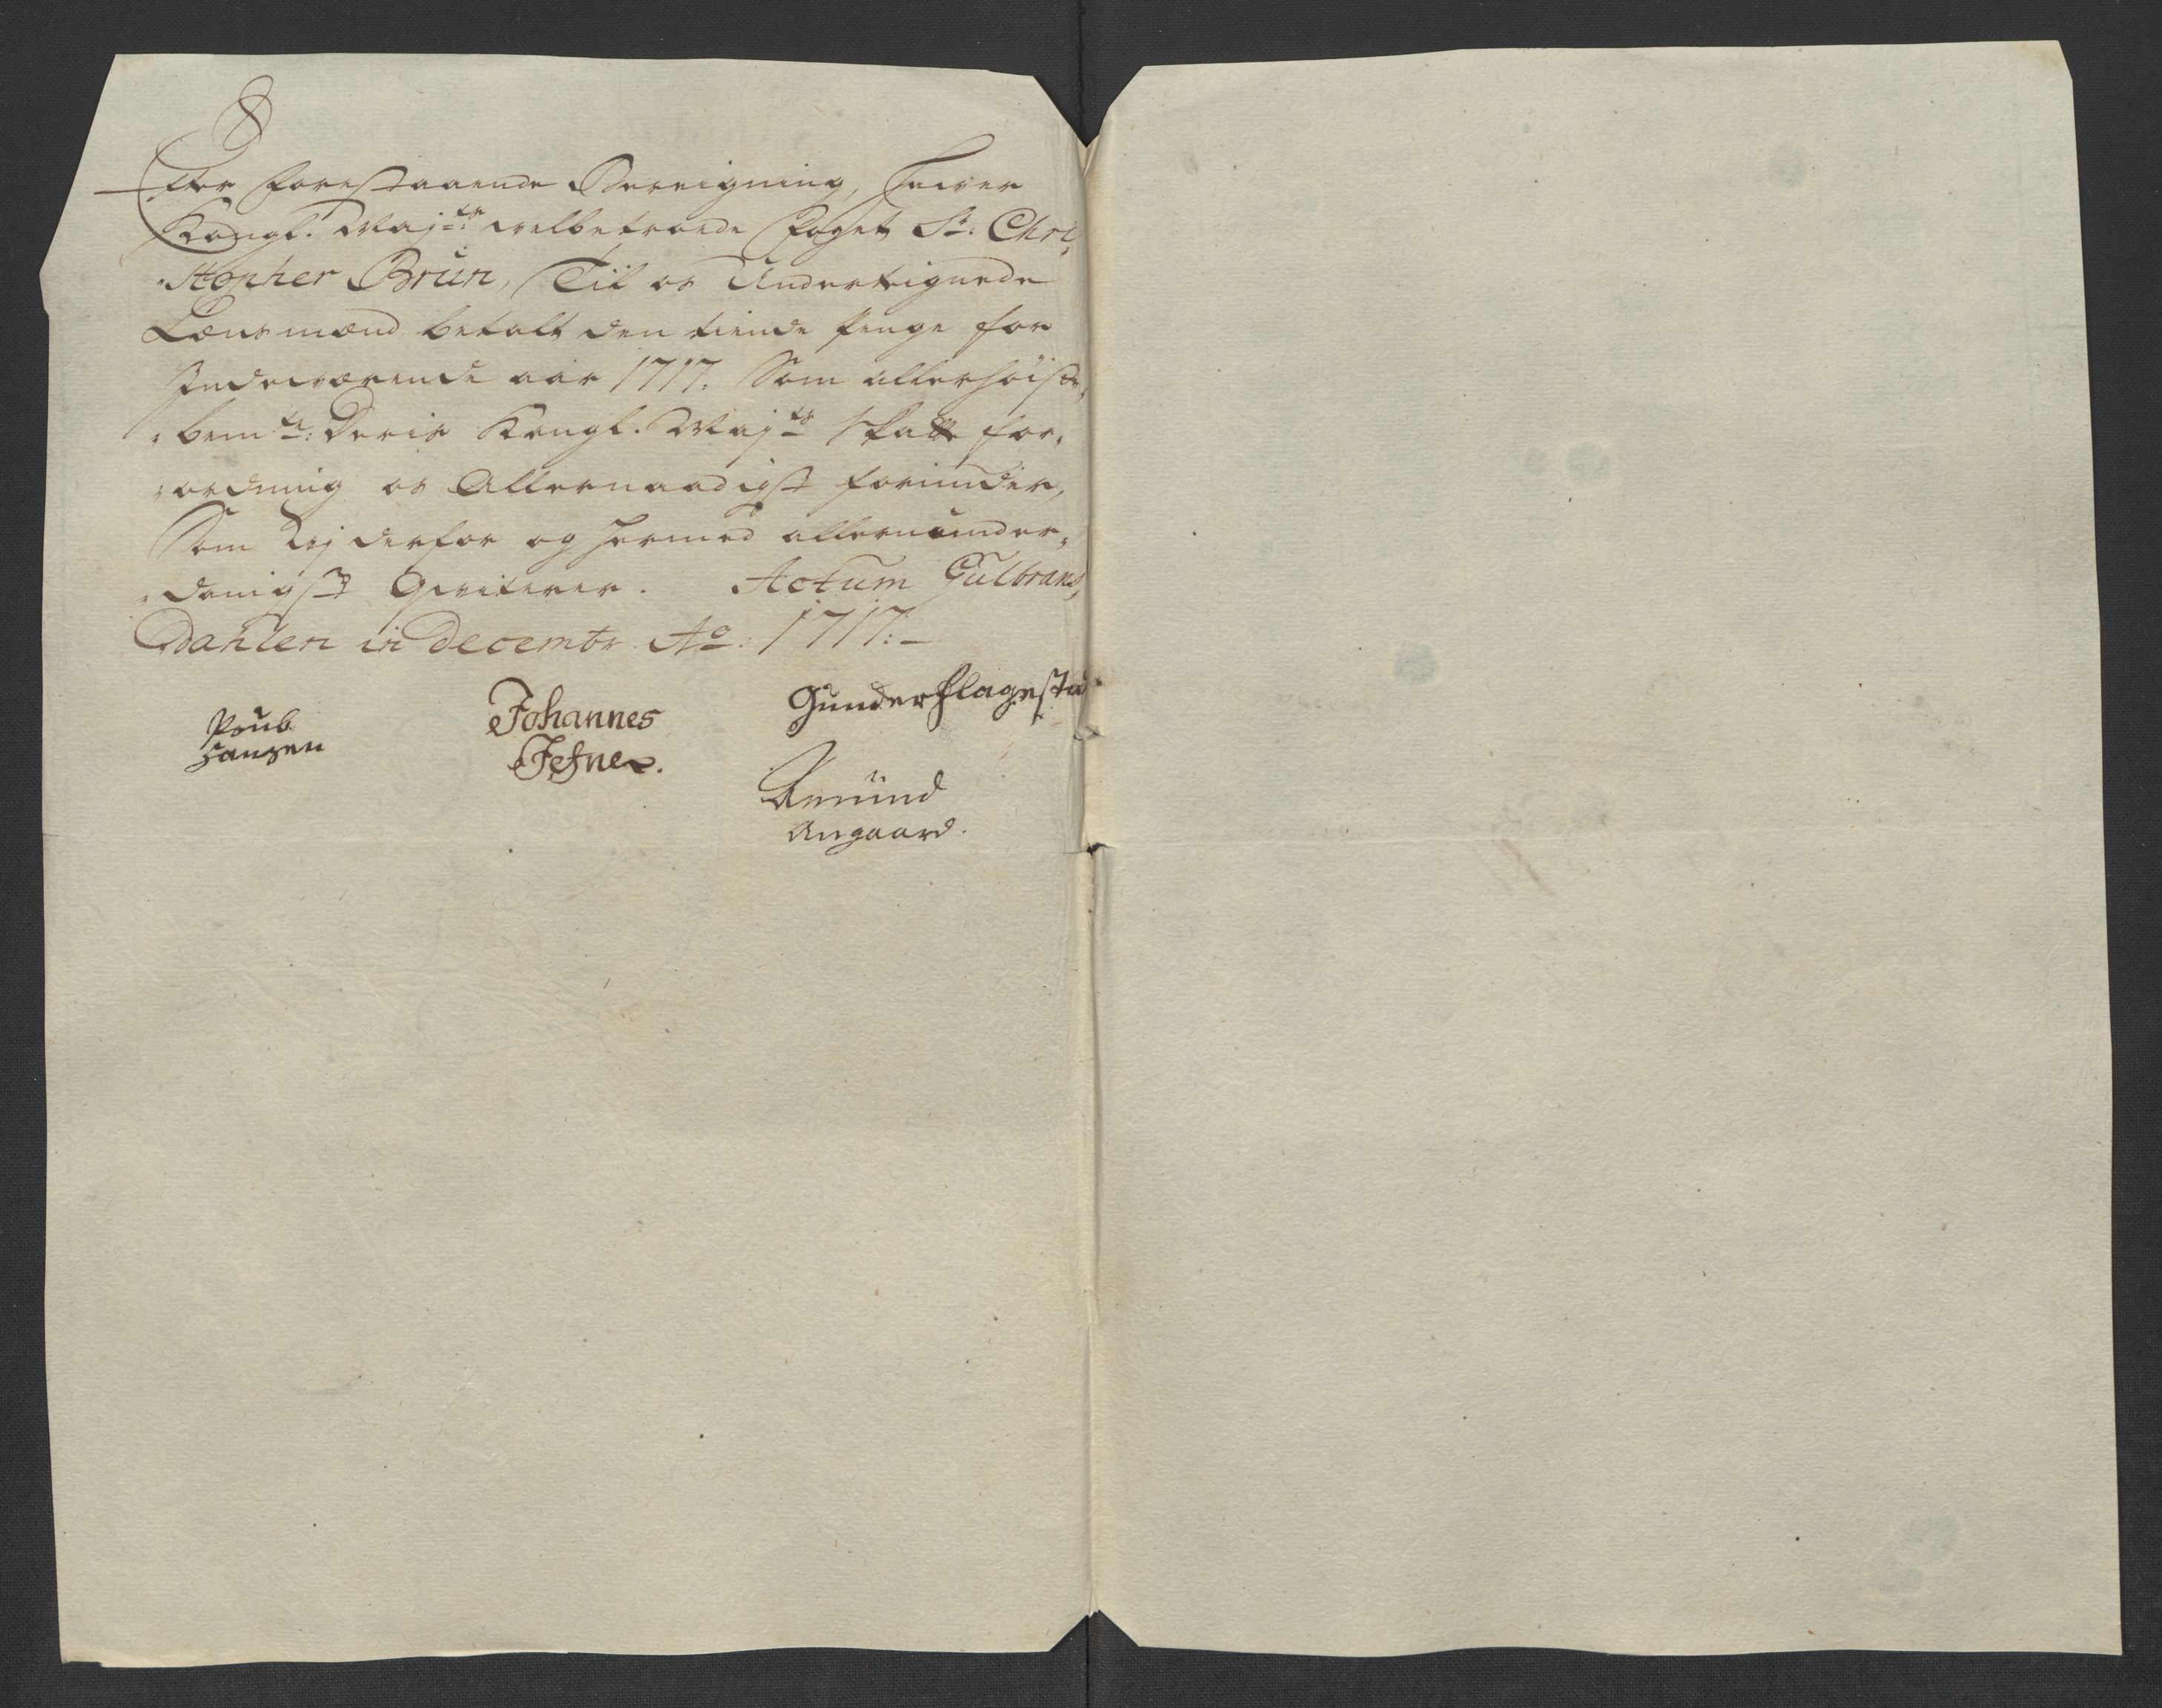 Efter forestaaende Bereigning, haver
Kongl. Maj:ts velbetroede foget Sr: Chri„
„stopher Brun, Til os Underteignede
Lensmænd betalt den tiende penge for
Indeværende aar 1717. Som allerhöist„
„bemte: Deris Kongl. Majts skatte for„
„ordning os Allernaadigst forunder,
Som Vej derfor og hermed allerunder„
„danigst Qviterer. Actum Gulbrans„
Dahlen in decembr. Ao: 1717:-
Poub
Hansen
Johannes
Jefne
Gunder Flagestad
Amünd
Angaard.